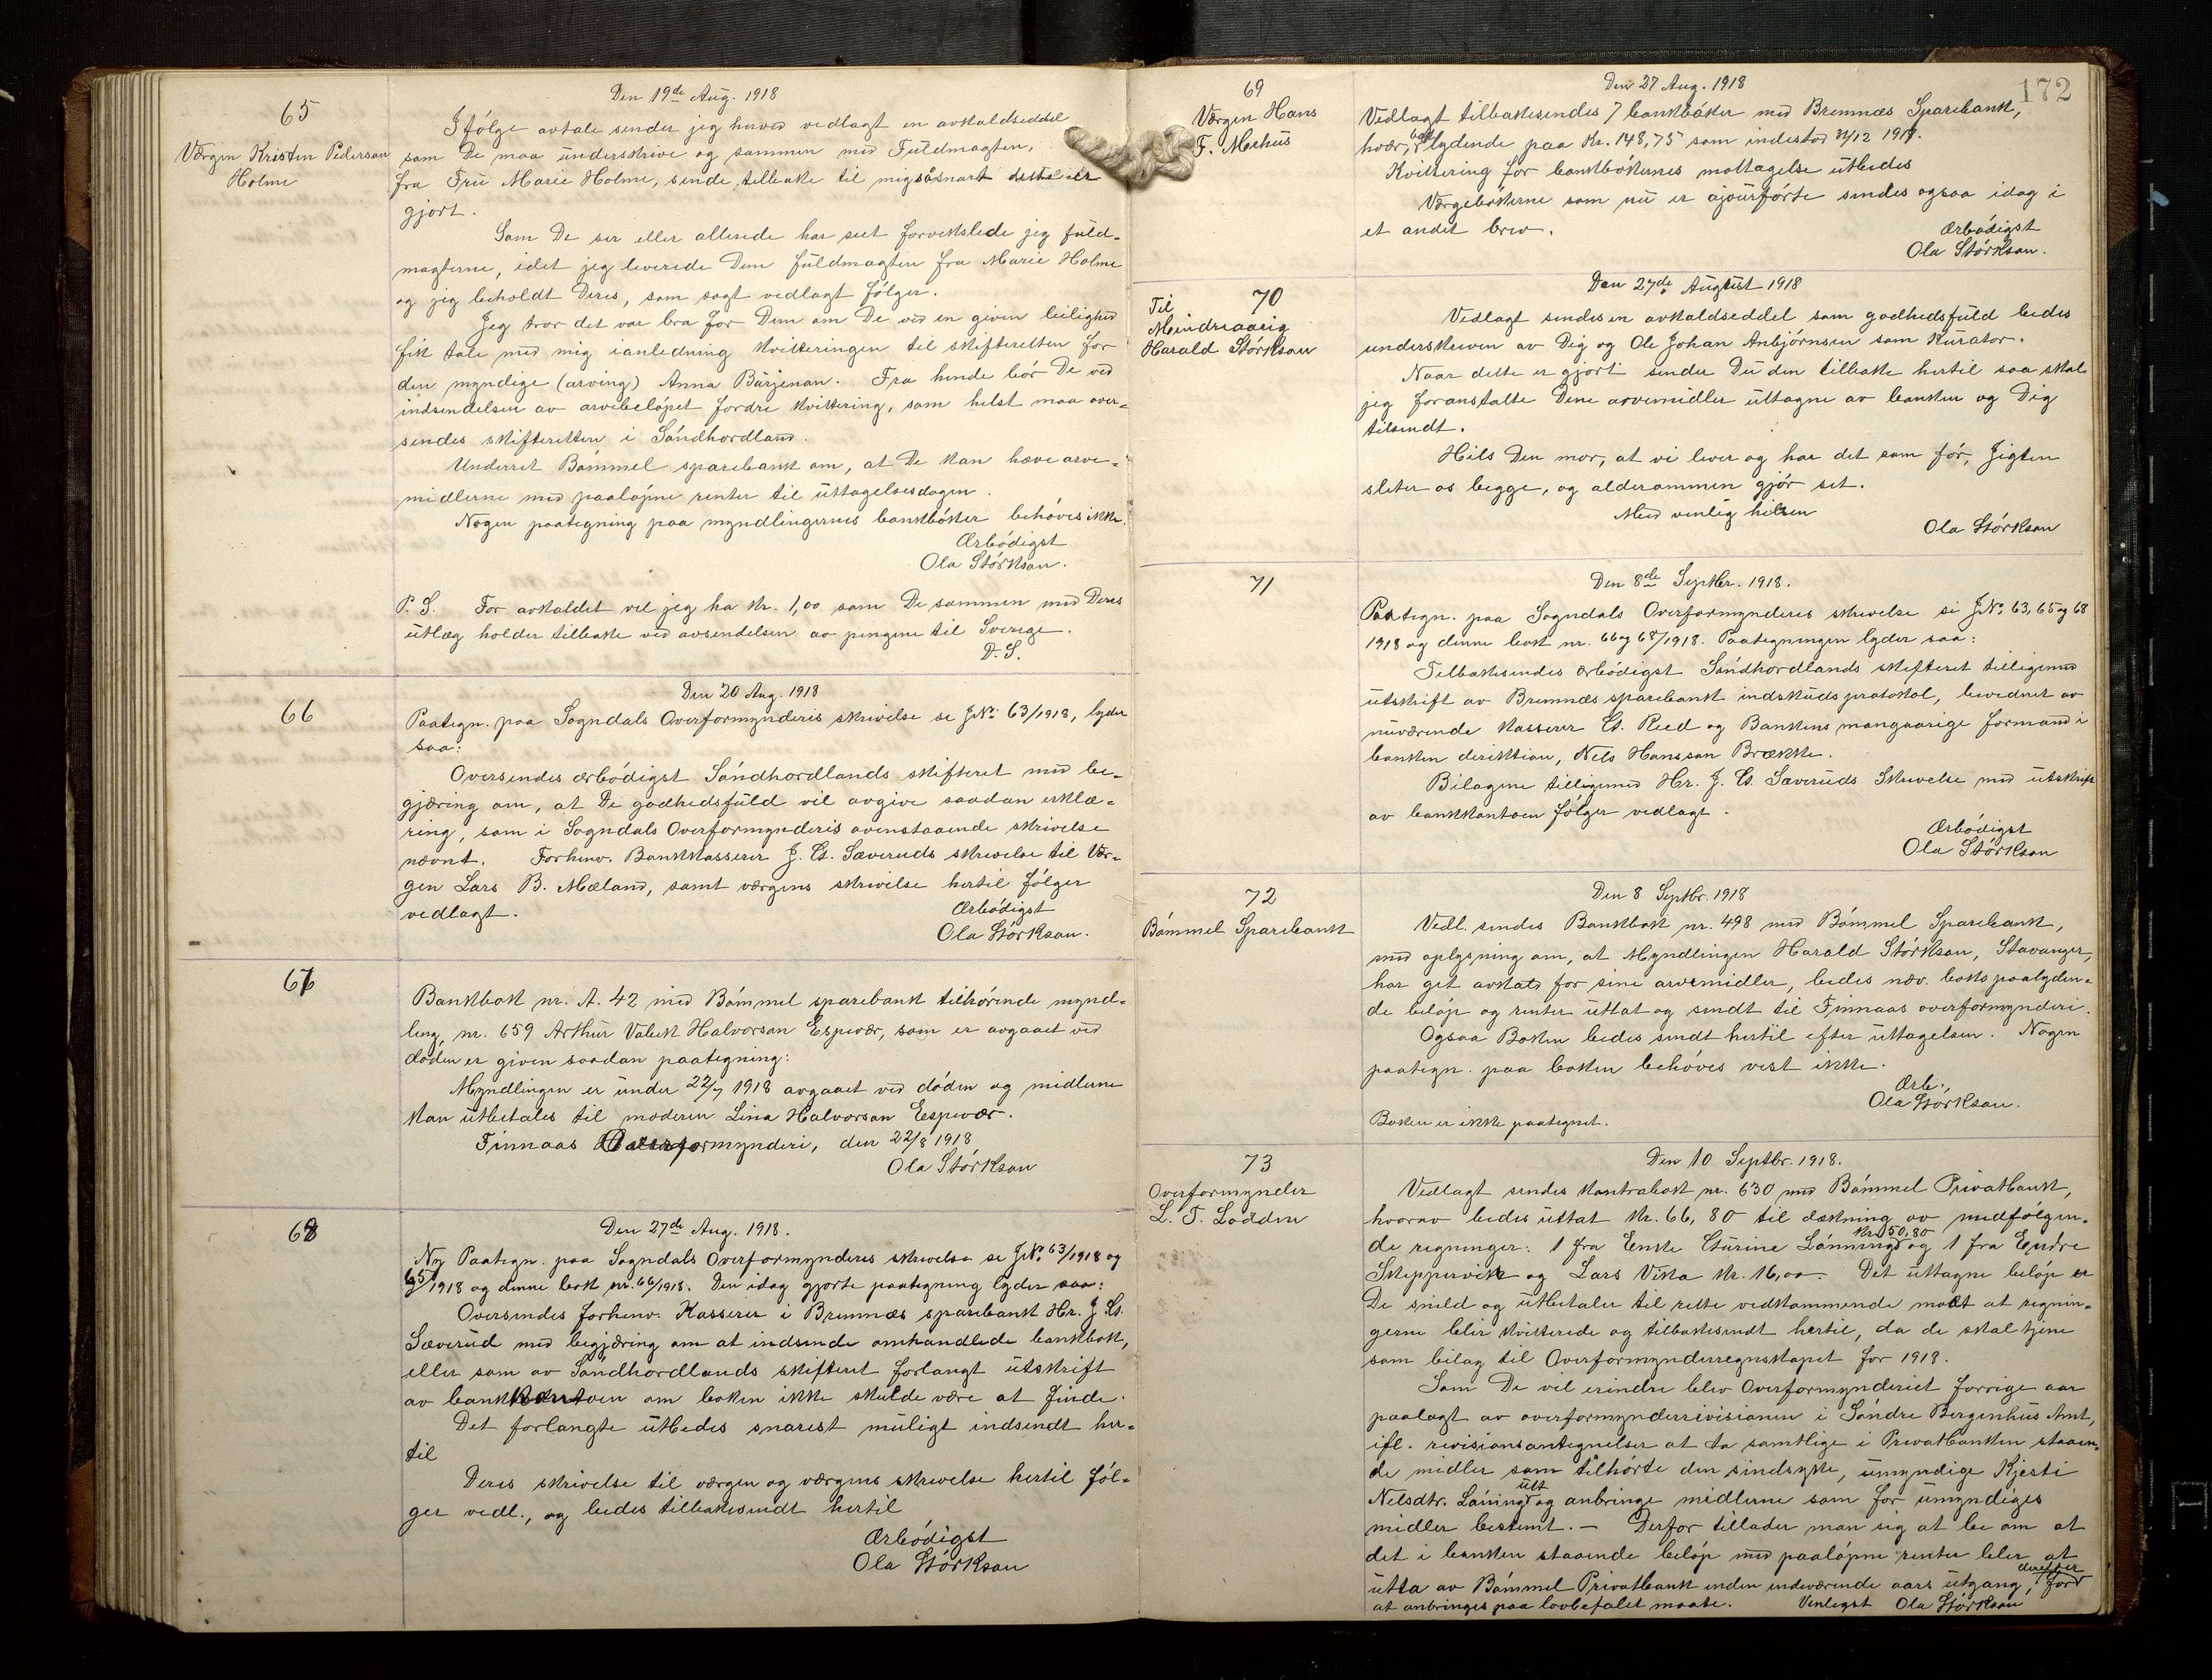 65
Værgen Kristen Pedersen
Holme
Den 19de Aug. 1918
Ifölge avtale sender jeg herved vedlagt en avkaldseddel
som De maa underskrive og sammen med Fuldmagten,
fra Fru Marie Holme, sende tilbake til mig såsnart dette er
gjort.
Som De ser eller allerede har seet forvekslede jeg fuld-
magterne, idet jeg leverede Dem fuldmagten fra Marie Holme
og jeg beholdt Deres, som sagt vedlagt fölger.
Jeg tror det var bra for Dem om De ved en given leilighed
fik tale med mig ianledning kvitteringen til skifteretten for
den myndige (arving) Anna Börjeson. Fra hende bör De ved
indsendelsen av arvebelöpet fordre kvittering, som helst maa over-
sendes skifteretten i Söndhordland.
Underret Bömmel sparebank om, at De kan hæve arve-
midlerne med paalöpne renter til uttagelsesdagen.
Nogen paategning paa myndlingernes bankböker behöves ikke.
Ærbödigst
Ola Störkson.
P. S. For avkaldet vil jeg ha kr. 1,00 som De sammen med Deres
utlæg holder tilbake ved avsendelsen av pengene til Sverige.
D. S.
66
Den 20 Aug. 1918
Paategn. paa Sogndals Overformynderis skrivelse se J№ 63/1918, lyder
saa:
Oversendes ærbödigst Söndhordlands skifteret med be-
gjæring om, at De godhedsfuld vil avgive saadan erklæ-
ring, som i Sogndals Overformynderis ovenstaaende skrivelse
nævnt. Forhenv. Bankkasserer J. Chr. Sæveruds skrivelse til Vær-
gen Lars B. Mæland, samt værgens skrivelse hertil fölger
vedlagt.
Ærbödigst
Ola Störkson.
67
Bankbok nr. A. 42 med Bömmel sparebank tilhörende mynd-
ling, nr. 659 Arthur Valeck Halvorson Espevær, som er avgaaet ved
döden er given saadan paategning:
Myndlingen er under 22/7 1918 avgaaet ved döden og midlerne
kan utbetales til moderen Lina Halvorson Espevær.
Finnaas Overformynderi, den 22/8 1918
Ola Störkson
68
Den 27de Aug. 1918.
Ny Paategn. paa Sogndals Overformynderis skrivelse se J№ 63/1918 og
65/1918 og denne bok nr. 66/1918. Den idag gjorte paategning lyder saa:
Oversendes forhenv. Kasserer i Bremnæs sparebank Hr. J. Chr.
Sæverud med begjæring om at indsende omhandlede bankbok,
eller som av Söndhordlands skifteret forlangt utskrift
av bankkontoen om boken ikke skulde være at finde.
Det forlangte utbedes snarest muligt indsendt her-
til
Deres skrivelse til værgen og værgens skrivelse hertil föl-
ger vedl., og bedes tilbakesendt hertil
Ærbödigst
Ola Störkson
172
69
Værgen Hans
F. Mehus
Den 27 Aug. 1918
Vedlagt tilbakesendes 7 bankböker med Bremnæs Sparebank,
hver, bok lydende paa Kr. 148,75 som indestod 31/12 1917.
Kvittering for bankbökernes mottagelse utbedes
Værgebökerne som nu er ajourförte sendes ogsaa idag i
et andet brev.
Ærbödigst
Ola Störkson.
70
Til
Mindreaarig
Harald Störkson
Den 27de August 1918
Vedlagt sendes en avkaldseddel som godhedsfuld bedes
underskreven av Dig og Ole Johan Anbjörnsen som Kurator.
Naar dette er gjort sender Du den tilbake hertil saa skal
jeg foranstalte Dine arvemidler uttagne av banken og Dig
tilsendt.
Hils Din mor, at vi lever og har det som för, Jigten
sleter os begge, og alderommen gjör set.
Med venlig hilsen
Ola Störkson
71
Den 8de Septbr. 1918.
Paategn. paa Sogndals Overformynderis skrivelse se J№ 63, 65 og 68
1918 og denne bok nr. 66 og 68/1918. Paategningen lyder saa:
Tilbakesendes ærbödigst Söndhordlands skifteret tilligemed
utskrift av Bremnæs sparebank indskudsprotokol, bevidnet av
nuværende kasserer Chr. Reed og Bankens mangaarige formand i
banken direktion, Nels Hansson Brække.
Bilagene tilligemed Hr. J. Chr. Sæveruds Skrivelse med utskrift
av bankkontoen fölger vedlagt.
Ærbödigst
Ola Störkson
72
Bömmel Sparebank
Den 8 Septbr. 1918
Vedl. sendes Bankbok nr. 498 med Bömmel Sparebank,
med oplysning om, at Myndlingen Harald Störkson, Stavanger,
har get avkald for sine arvemidler, bedes næv. boks paalyden-
de belöp og renter uttat og sendt til Finnaas overformynderi.
Ogsaa Boken bedes sendt hertil efter uttagelsen. Nogen
paategn. paa boken behöves vist ikke.
Ærb.,
Ola Störkson.
Boken er ikke paategnet.
73
Overformynder
L. T. Lodden
Den 10 Septbr. 1918.
Vedlagt sendes kontrabok nr. 630 med Bömmel Privatbank,
hvorav bedes uttat kr. 66,80 til dækning av medfölgen-
de regninger: 1 fra Enke Sturine Lönning Kr. 50,80 og 1 fra Endre
Skippervik og Lars Vika kr. 16,00. Det uttagne belöp er
De snild og utbetaler til rette vedkommende mot at regnin-
gerne blir kvitterede og tilbakesendt hertil, da de skal tjene
som bilag til Overformynderregnskapet for 1918.
Som De vil erindre blev Overformynderiet forrige aar
paalagt av overformynderrevisionen i Söndre Bergenhus Amt,
ifl. revisionsantegnelser at ta samtlige i Privatbanken staaen-
de midler som tilhörte den sindssyke, umyndige Kjersti
Nelsdtr. Lönning ut og anbringe midlerne som for umyndiges
midler bestemt. — Derfor tillader man sig at be om at
det i banken staaende belöp med paalöpne renter bler at
utta av Bömmel Privatbank inden indeværende aars utgang, derefter for
at anbringes paa lovbefalet maate. Venligst Ola Störkson